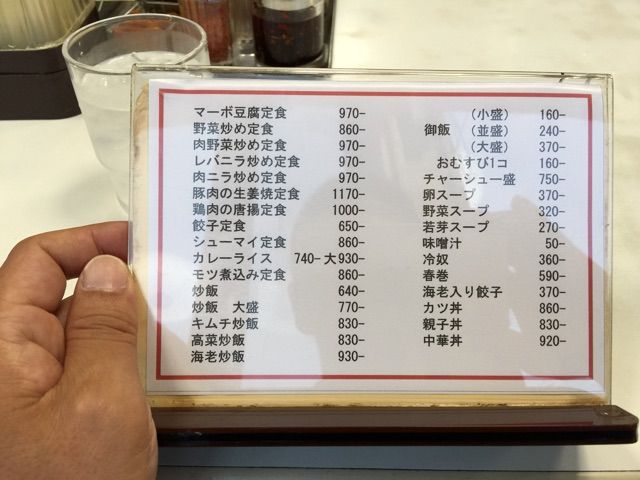 マーボ豆腐定食 970-
野菜炒め定食 860-
肉野菜炒め定食 970-
レバニラ炒め定食 970-
肉ニラ炒め定食 970-
豚肉の生姜焼定食 1170-
鶏肉の唐揚定食 1000-
餃子定食 650-
シューマイ定食 860-
カレーライス 740-大930-
モツ煮込み定食 860-
炒飯 640-
炒飯 大盛 770-
キムチ炒飯 830-
高菜炒飯 830-
海老炒飯 930-
(小盛) 160-
御飯 (並盛) 240-
(大盛) 370-
おむすび1コ 160-
チャーシュー盛 750-
卵スープ 370-
野菜スープ 320-
若芽スープ 270-
味噌汁 50-
冷奴 360-
春巻 590-
海老入り餃子 370-
カツ丼 860-
親子丼 830-
中華丼 920-